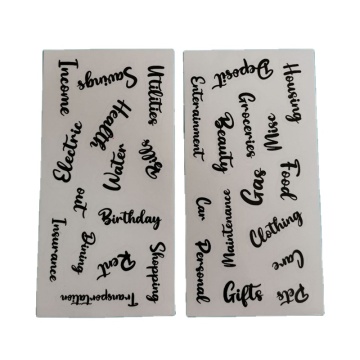 Income
Savings
Utilities
Health
Bills
Electric
Water
out
Birthday
Insurance
Dining
Rent
Shopping
Transportation
Deposit
Housing
Entertainment
Groceries
Misc
Beauty
Food
Gas
Car
Maintenance
Clothing
Personal
Care
Gifts
Pets